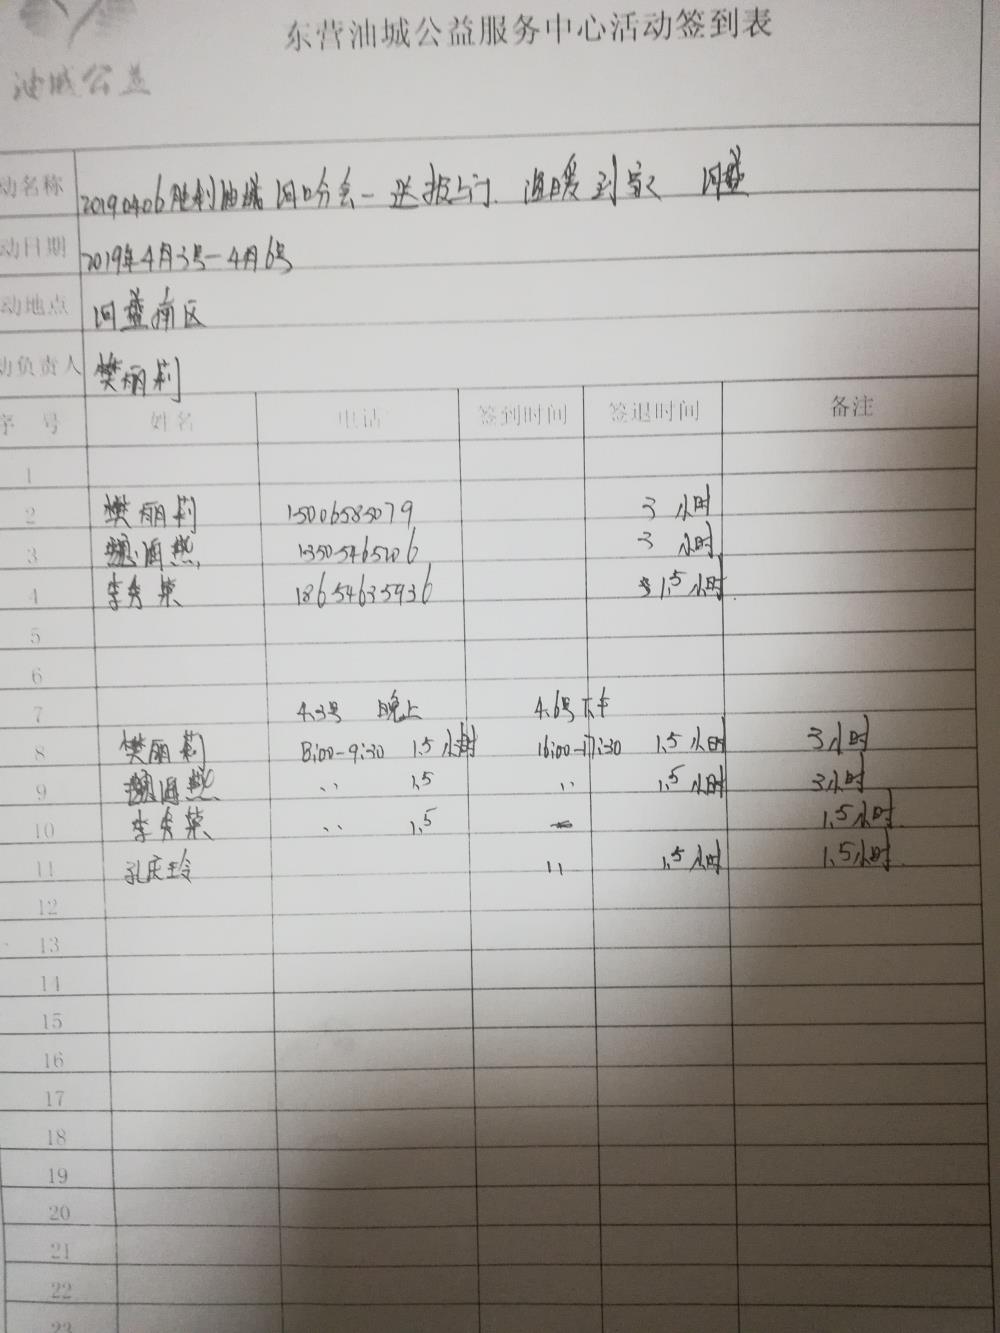 东营油城公益服务中心活动签到表
油城公益
动名称 20190406胜利油城河口分会-送报上门.温暖到家 河盛
动日期 2019年4月3号-4月6号
动地点 河盛南区
动负责人 樊丽莉
序号 姓名 电话 签到时间 签退时间 备注
1
2 樊丽莉 15006585079 3小时
3 海燕 13505465206 3小时
4 李秀荣 18654635936 1.5小时
5
6
7 4.3号 晚上 4.6号 下午
8 樊丽莉 8:00-9:30 1.5小时 16:00-17:30 1.5小时 3小时
9 海燕 ,, 1.5 ,, 1.5小时 3小时
10 李秀荣 ,, 1.5 - 1.5小时
11 孔庆玲 ,, 1.5小时 1.5小时
12
13
14
15
16
17
18
19
20
21
22
23